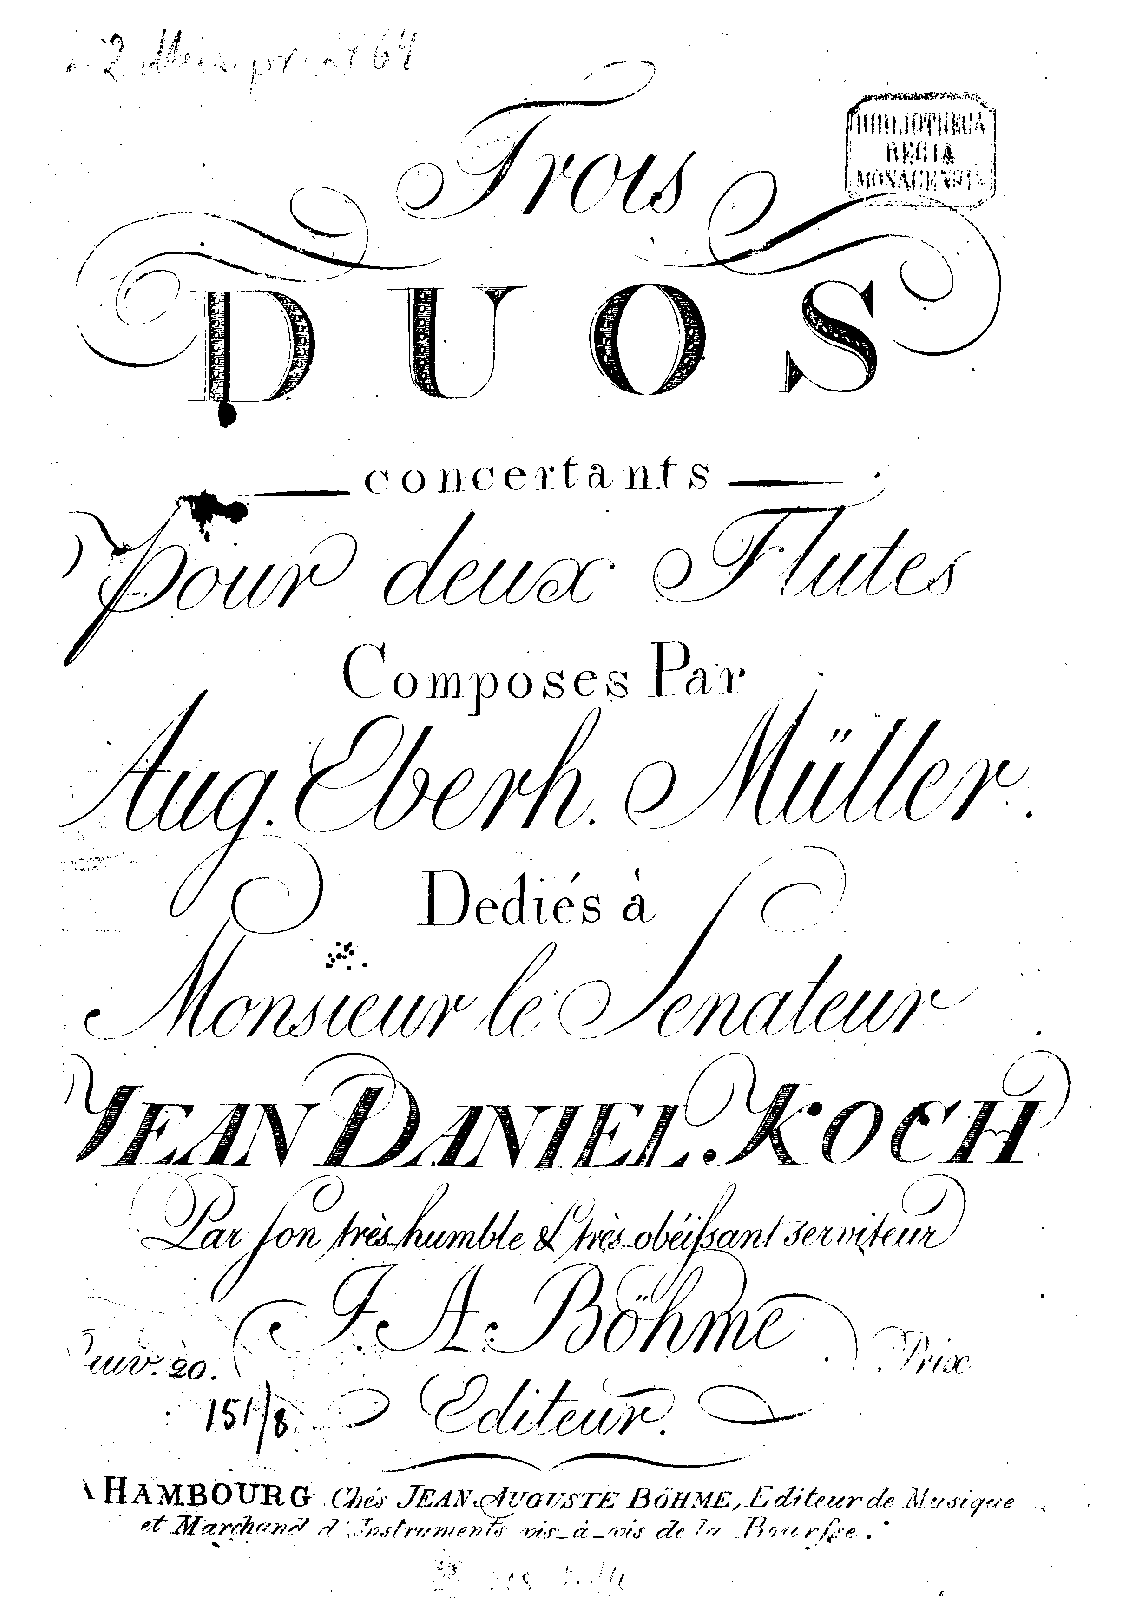 Trois
BIBLIOTHECA
REGIA
MONACENSIS
DUOS
concertants
pour deux Flutes
Composes Par
Aug. Eberh. Müller.
Dediés à
Monsieur le Senateur
JEAN DANIEL. KOCH
Par son très humble & très obéissant serviteur
J. A. Böhme
Oeuv. 20. Prix
151/8 Editeur.
A HAMBOURG Chés JEAN AUGUSTE BÖHME, Editeur de Musique
et Marchand d'Instruments vis-à-vis de la Bourse.